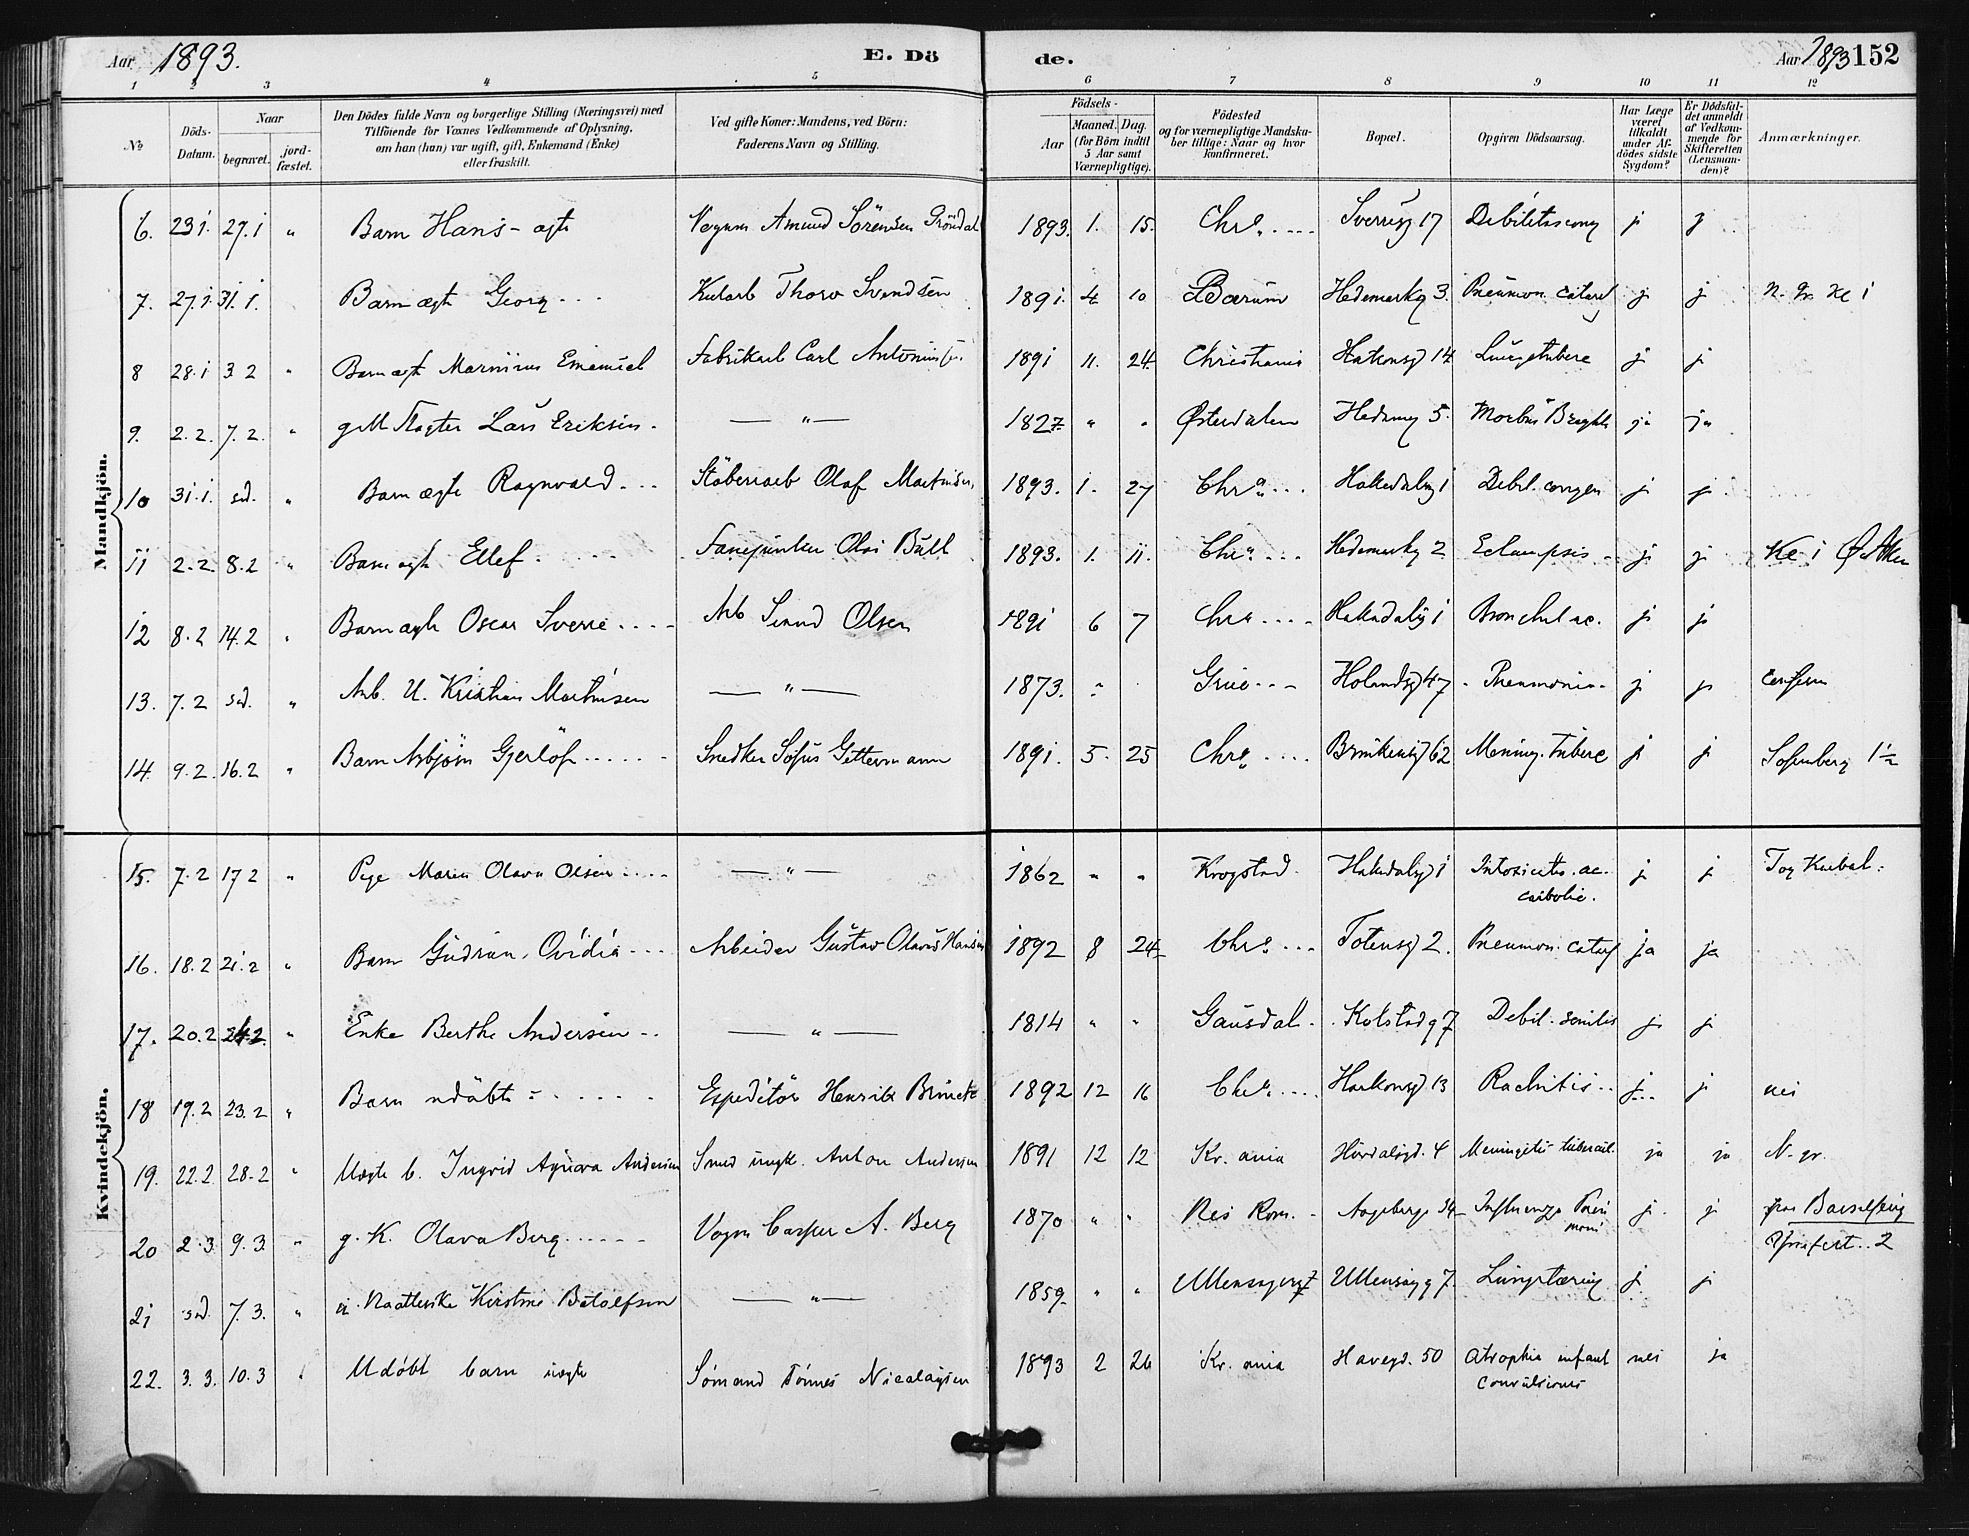 Aar 1893. E. Dö de. Aar 1893 152
1 2 3 4 5 6 7 8 9 10 11 12
№
Döds-Datum.
Naar
begravet. jordfæstet.
Den Dödes fulde Navn og borgerlige Stilling (Næringsvei) med
Tilföiende for Voxnes Vedkommende af Oplysning,
om han (hun) var ugift, gift, Enkemand (Enke)
eller fraskilt.
Ved gifte Koner: Mandens, ved Börn:
Faderens Navn og Stilling.
Födsels-
Aar Maaned. Dag.
(for Börn indtil
5 Aar samt
Værnepligtige).
Födested
og for værnepligtige Mandska-
ber tillige: Naar og hvor
konfirmeret.
Bopæl.
Opgiven Dödsaarsag.
Har Læge
været
tilkaldt
under Af-
dödes sidste
Sygdom?
Er Dödsfal-
det anmeldt
af Vedkom-
mende for
Skifteretten
(Lensman-
den)?
Anmærkninger.
Mandkjön.
6. 23 1. 27. 1 " Barn Hans - ægte Amund Sörensen Gröndal 1893. 1. 15. Chra Sverresg 17 Debilitas cong j j
7. 27. 1. 31. 1. Barn ægte Georg Thorv Svendsen 1891. 4 10 Bærum Hedemarkg 3. Pneumon. catarrh j j
8 28. 1 3 2 " Barn ægte Marinius Emanuel Fabrikarb Carl 1891 11. 24. Christiania Hakonsg 14 Lungetuberc j j
9. 2. 2. 7. 2. " g M Lars Eriksen — " — 1827. " " Østerdalen Hedemg 5. Morbus Brightii ja ja
10 31. 1. sd. " Barn ægte Ragnvald Stöberiarb Olaf Martinsen 1893. 1. 27 Chra Hakedalsg 1 Debil. congen j j
11 2. 2. 8. 2 " Barn ægte Ellef Bull 1893. 1. 11. Chra Hedemarkg 2 Eclampsis j j Kl 1 Ø. Aker
12 8. 2 14. 2 " Barn ægte Oscar Sverre Arb Olsen 1891 6 7 Chra Hakedalsg 1 Bronchit ac. j j
13. 7. 2 sd. " Arb. U. Kristian Martinsen — " — 1873. " Grue 47 Pneumonia j j
14. 9. 2. 16. 2 " Barn Asbjörn Gjerlöf Snedker Sofus Gettermann 1891. 5. 25 Chra 62 Mening. tuberc j j Sofienberg 1 ½
Kvindekjön.
15. 7. 2 17 2 " Pige Maren Olava Olsen — " — 1862 " " Krogstad Hakedalsg 1 Intoxicatio. ac.
carbolic. j j Tog Karbol.
16. 18. 2 21. 2 " Barn Gudrun. Ovidia Arbeider Gustav Olavus Hansen 1892 8 24 Chra Totensg 2. Pneumon. catarh ja ja
17. 20. 2 24. 2. " Enke Berthe Andersen — " — 1814 " " Gausdal Kolstadg 7 Debil. senilis j j
18 19. 2 23. 2 " Barn udöbt Expeditör Henrik 1892 12 16 Chra Haakonsg 13 Rachitis j j nei
19. 22. 2. 28. 2 " Uægte b. Ingrid Andersen Smed ungk. Anton Andersen 1891 12 12 Kr. ania Hurdalsgd. 4 Meningitis tubercul. ja ja N. gr.
20 2. 3. 9. 3. " g. K. Olava Berg Vogn Casper A. Berg 1870 " " Nes Rom. Aageberg 34 Influenza
j j Barselseng
2
21 sd. 7. 3. " Kirstine — " — 1859. " " Ullensager Ullensagg 7 Lungetæring j j
22. 3. 3. 10. 3 " Udöbt barn uægte Sömand Tönnes Nicolaysen 1893 2 26 Kr. ania Havegd. 50 Atrophia infant
convulsiones nei ja